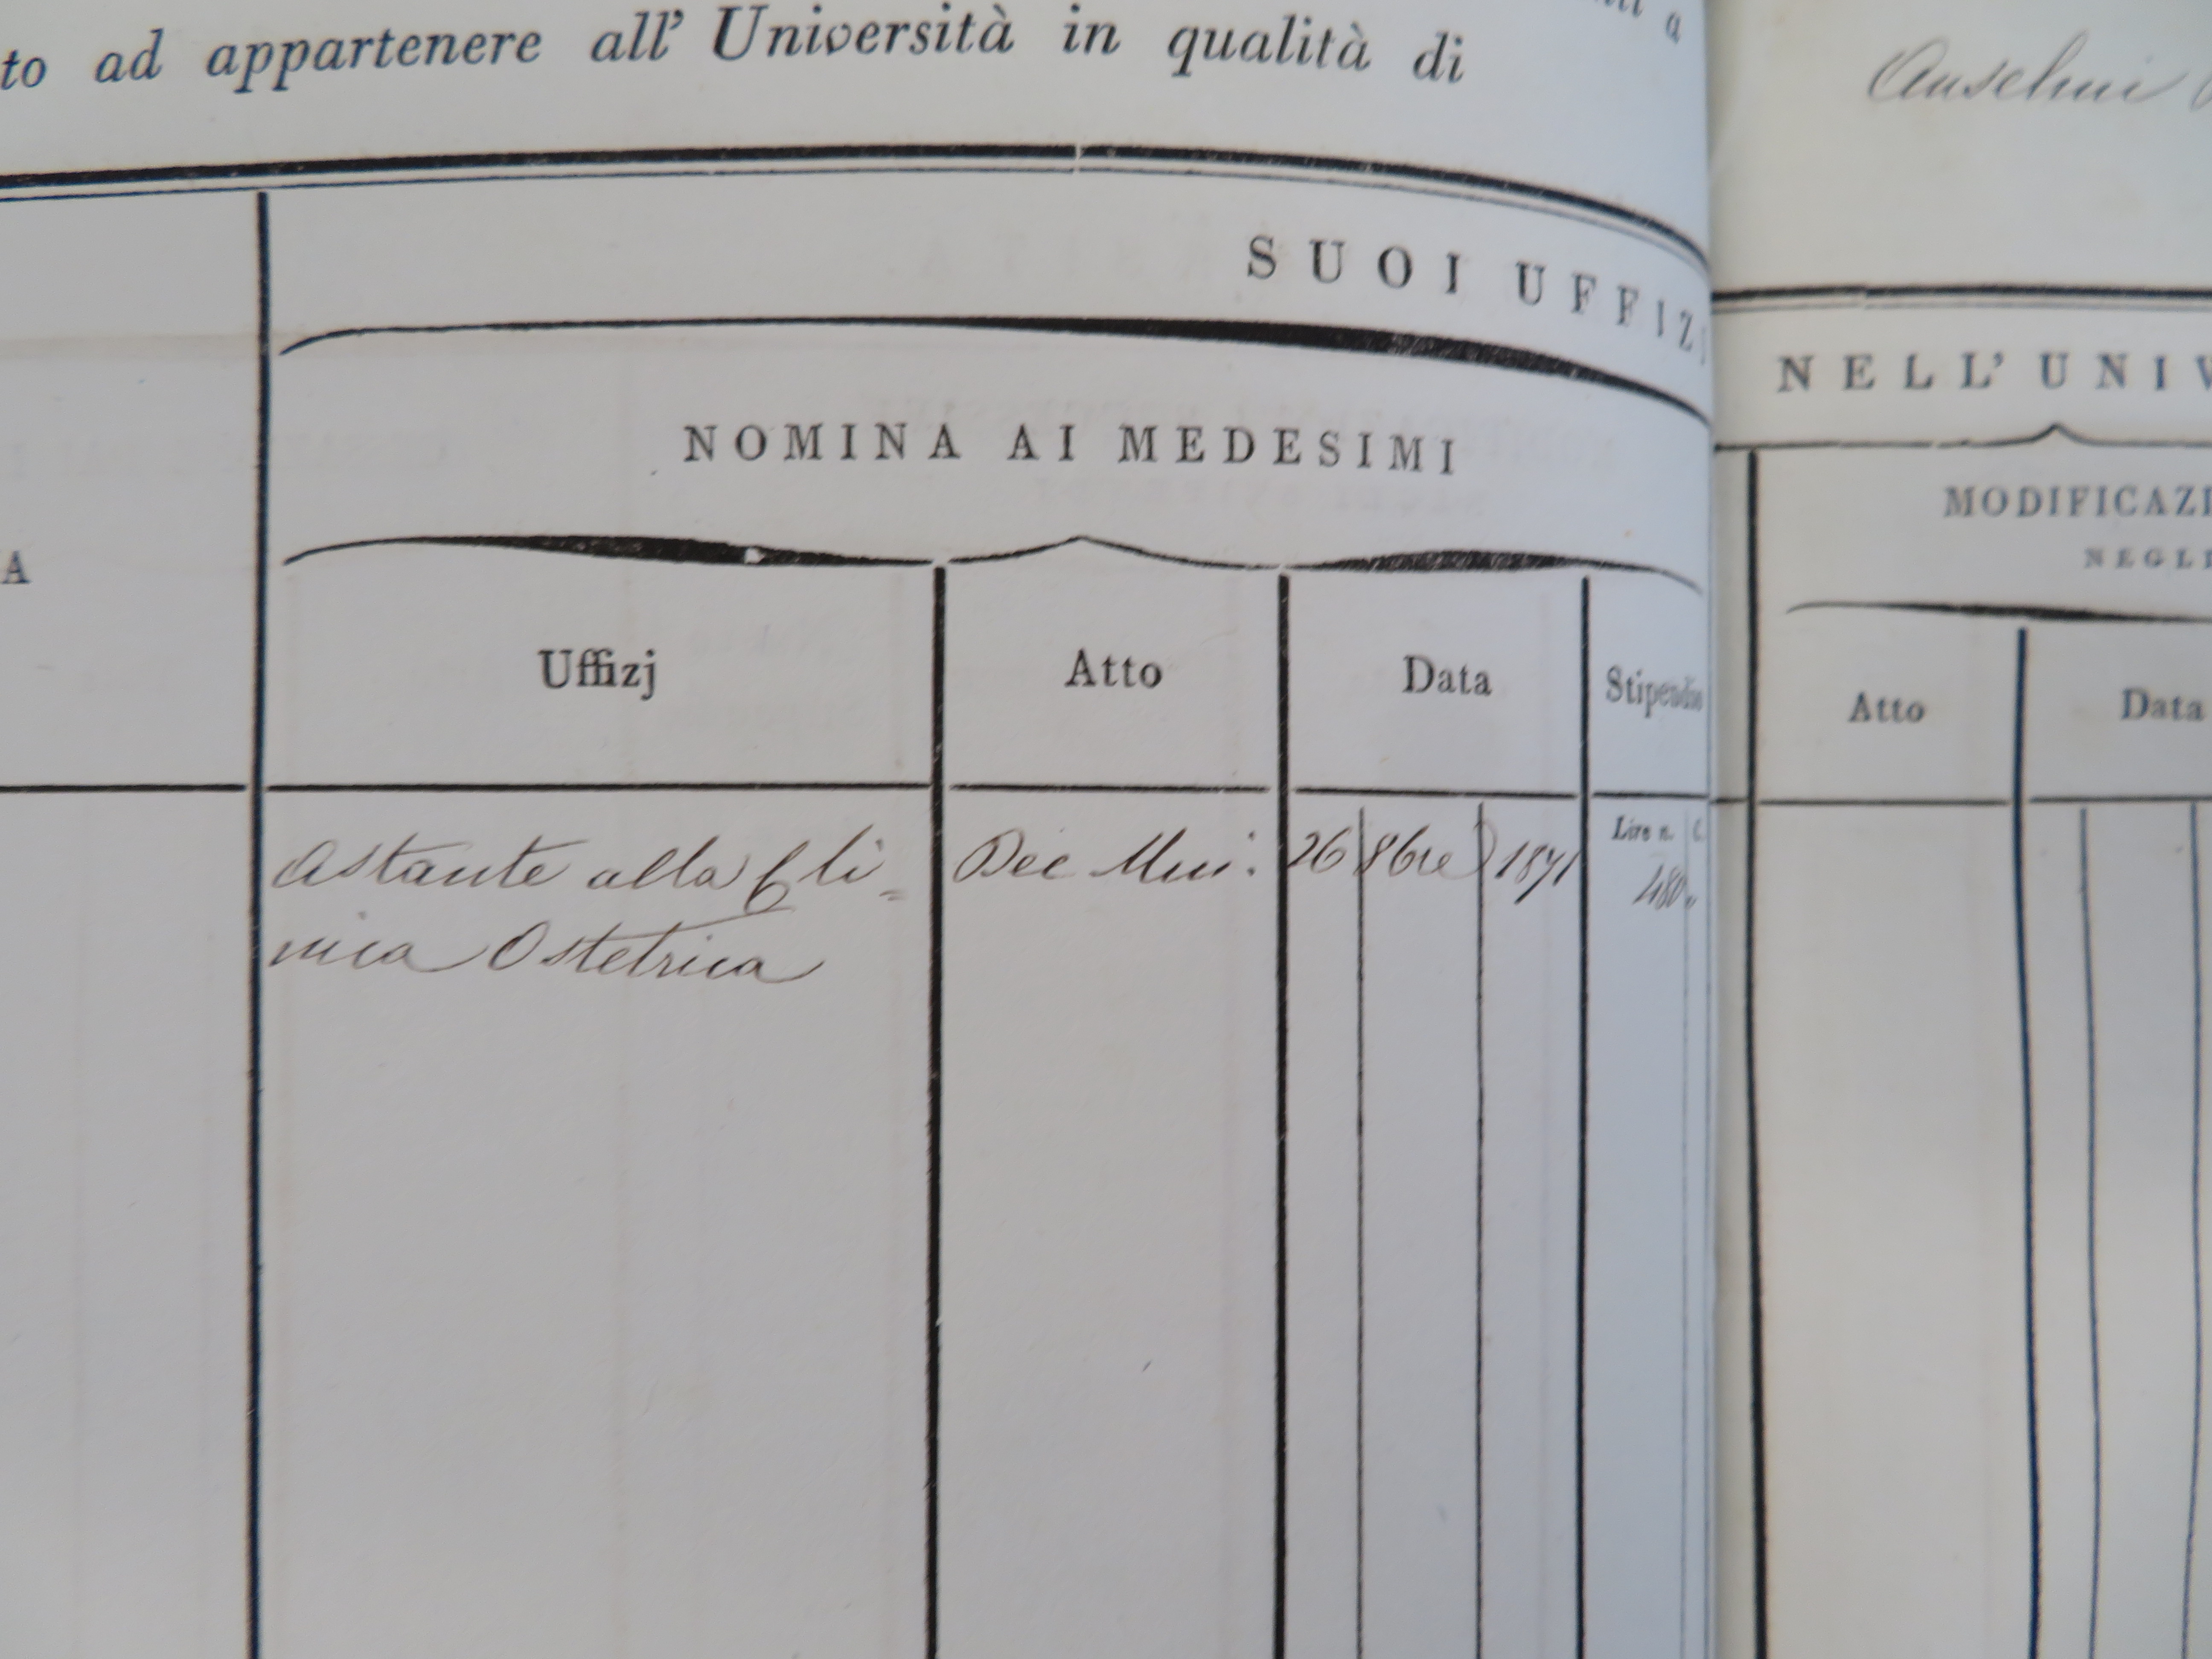 to ad appartenere all' Università in qualità di
a
Anselmi
SUOI UFFIZJ
NELL' UNIV
NOMINA AI MEDESIMI
MODIFICAZI
NEGLI
A
Uffizj
Atto
Data
Stipendio
Atto
Data
Lire n. C.
Astante alla Cli=
nica Ostetrica
Dec Min:
26 8bre 1871
480 "